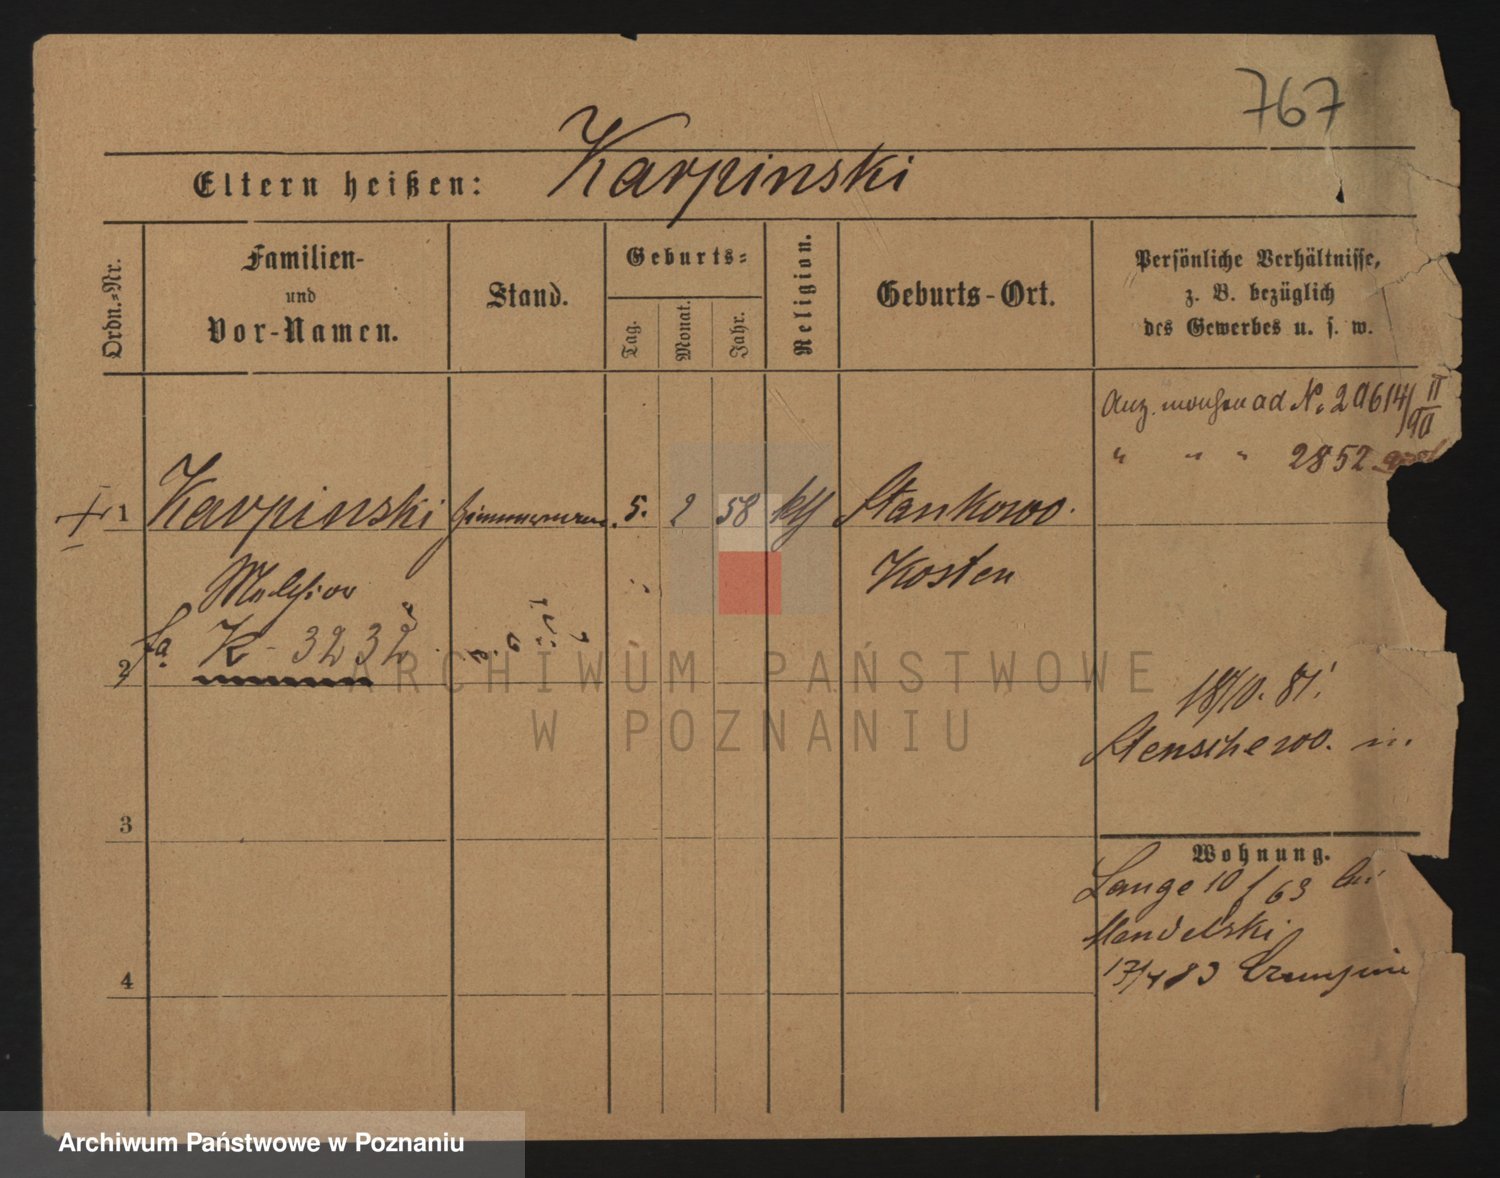 767
Eltern heißen: Karpinski
Ordn.-Nr.
Familien-
und
Vor-Namen.
Stand.
Geburts-
Tag.
Monat.
Jahr.
Religion.
Geburts-Ort.
Persönliche Verhältnisse,
z. B. bezüglich
des Gewerbes u. s. w.
ad No 29614/II
" " " 2852
1 Karpinski 5. 2 58 kth Stankowo.
Melchior Kosten
2 K - 3232
18/10. 81.
Stenschewo.
3
Wohnung.
Lange 10 f 63 bei
Mendelski
4
17/4 83
ARCHIWUM PAŃSTWOWE
W POZNANIU
Archiwum Państwowe w Poznaniu